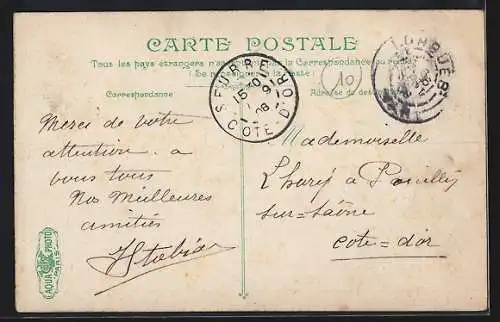 CARTE POSTALE
Tous les pays étrangers n'acceptent pas la Correspondance au recto
(Se renseigner à la Poste)
Correspondance
Adresse du destinataire
SEURRE
15
08
COTE-D'OR
10
Merci de votre
attention. a
vous tous
Nos Meilleures
amitiés
Mademoiselle
à Pouilly
sur=Saône
Cote=d'or
AQUA PHOTO
PARIS